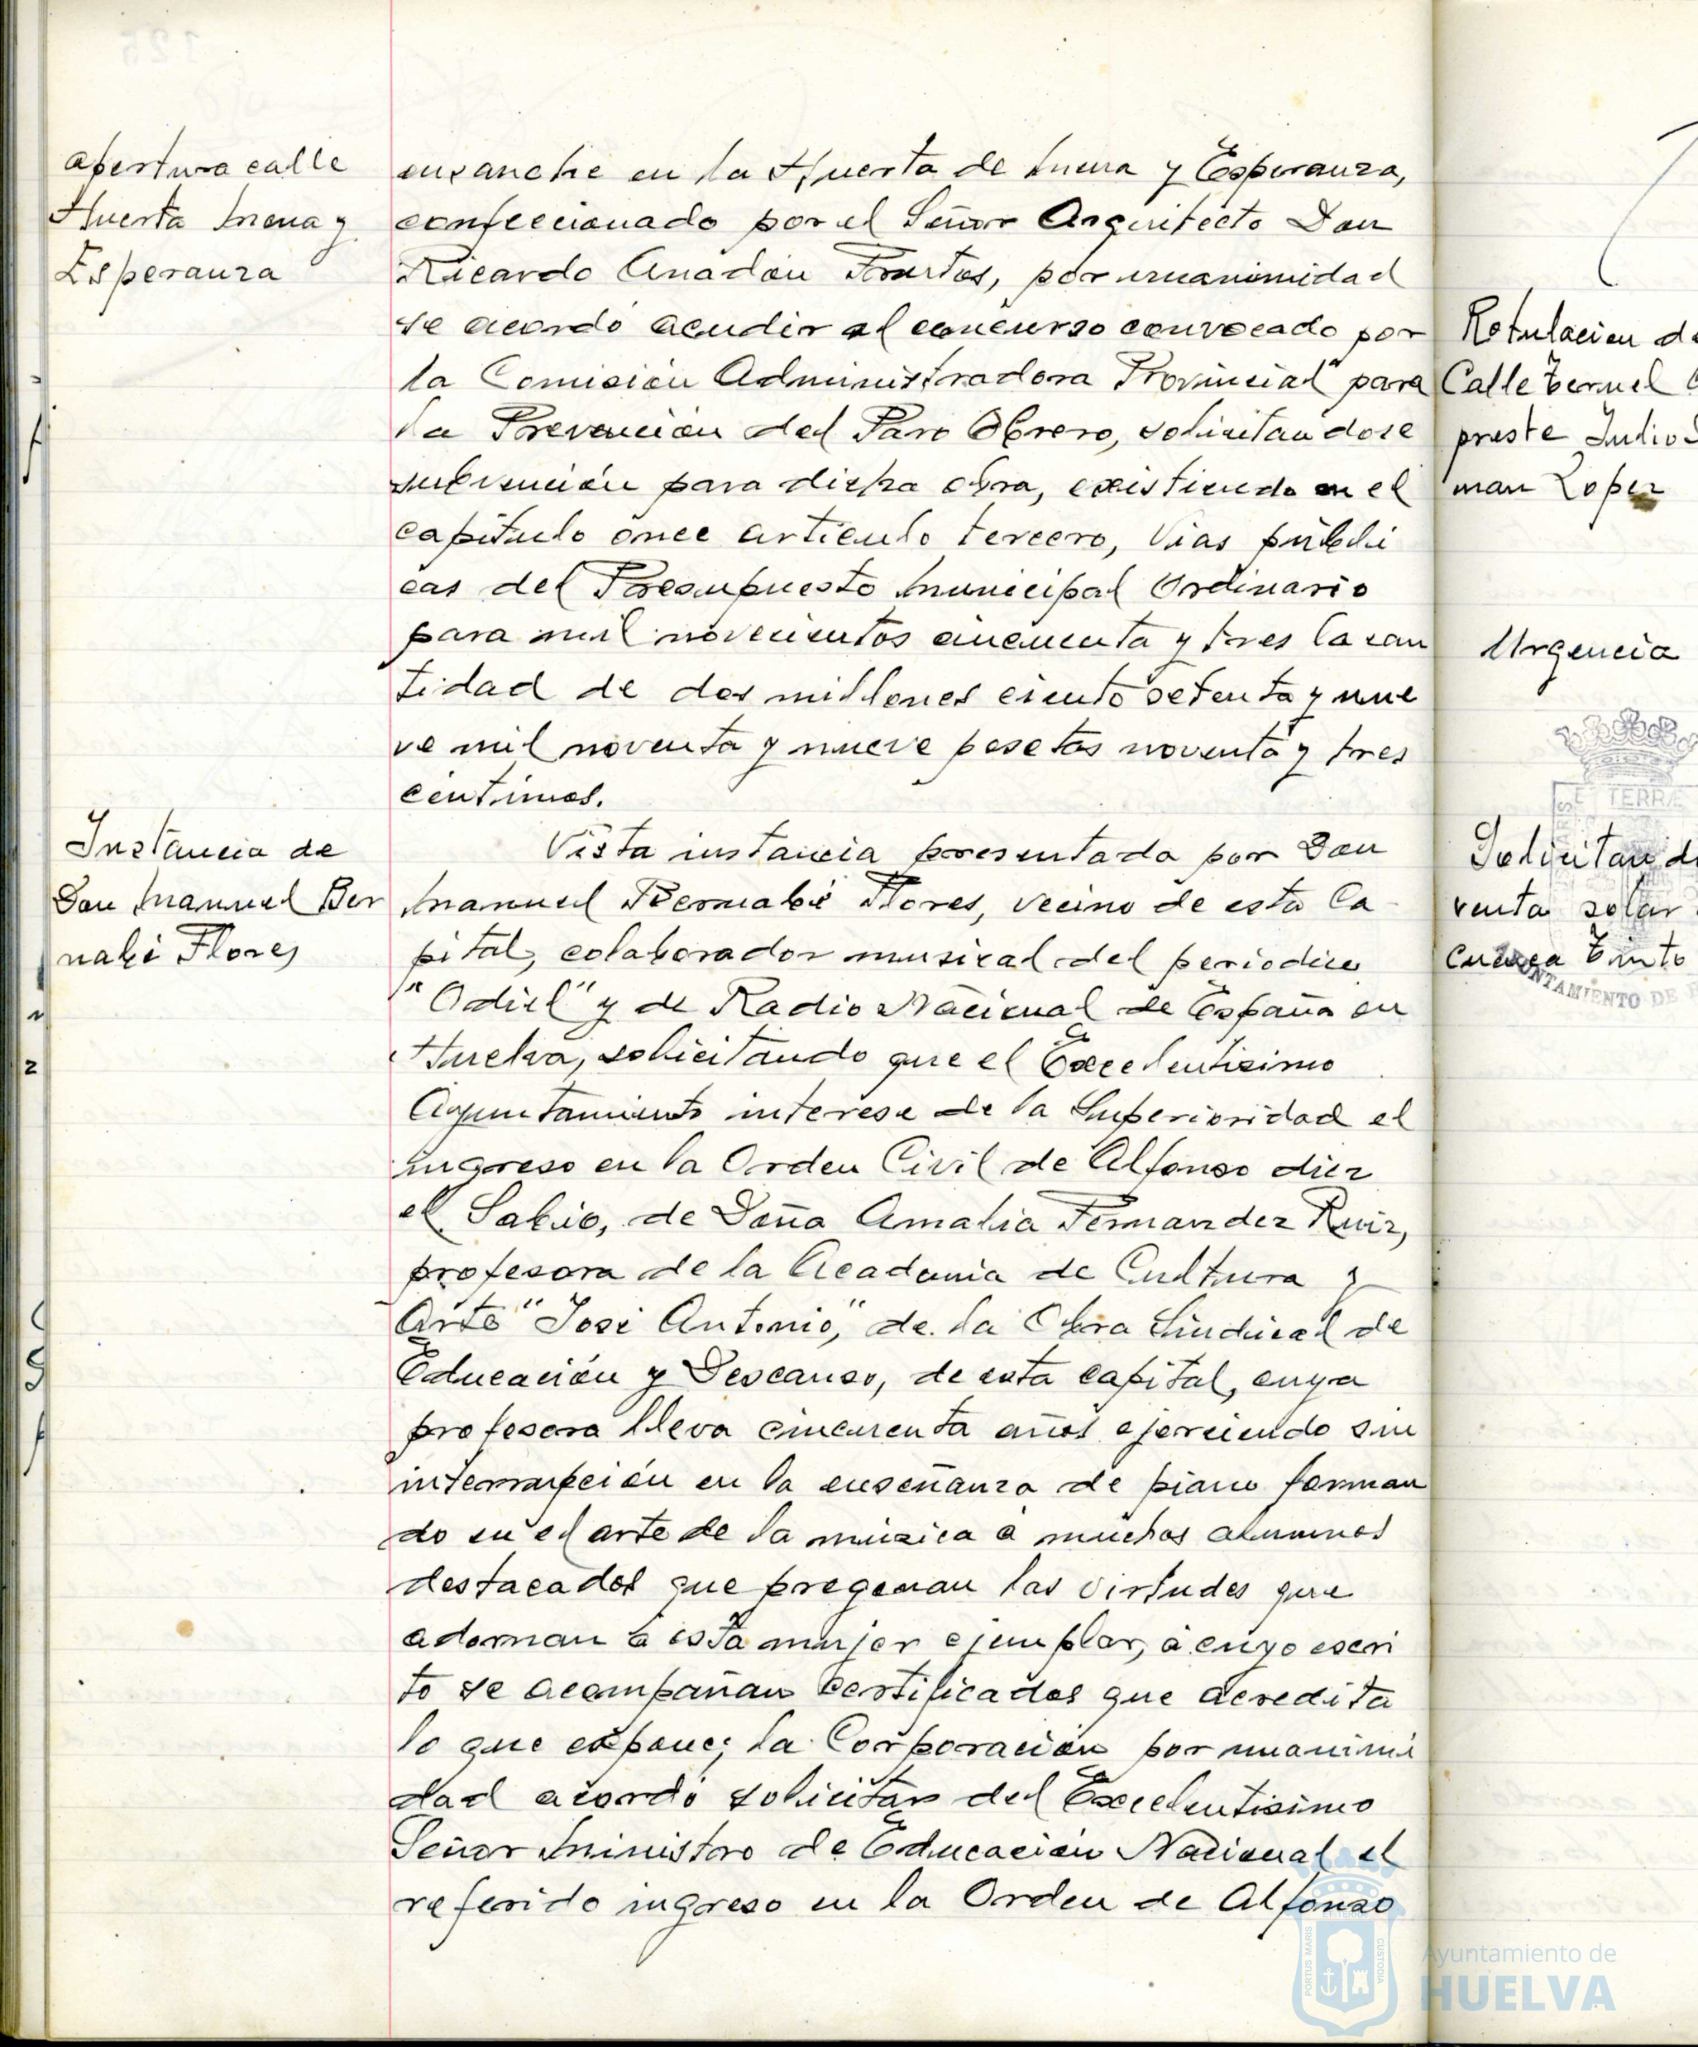 apertura calle
Huerta Mena y
Esperanza
ensanche en la Huerta de Mena y Esperanza,
confeccionado por el Señor Arquitecto Don
Ricardo Anadón Frutos, por unanimidad
se acordó acudir al concurso convocado por
la Comisión Administradora Provincial para
la Prevención del Paro Obrero, solicitandose
subvención para dicha obra, existiendo en el
capítulo once artículo tercero, Vias públi
cas del Presupuesto Municipal Ordinario
para mil novecientos cincuenta y tres la can
tidad de dos millones ciento setenta y nue
ve mil noventa y nueve pesetas noventa y tres
centimos.
Instancia de
Don Manuel Ber
nabé Flores
Vista instancia presentada por Don
Manuel Bernabé Flores, vecino de esta Ca
pital, colaborador musical del periodico
"Odiel" y de Radio Nacional de España en
Huelva, solicitando que el Excelentisimo
Ayuntamiento interese de la Superioridad el
ingreso en la Orden Civil de Alfonso diez
el Sabio, de Doña Amalia Fernandez Ruiz,
profesora de la Academia de Cultura y
Arte "José Antonio", de la Obra Sindical de
Educación y Descanso, de esta capital, cuya
profesora lleva cincuenta años ejerciendo sin
interrupción en la enseñanza de piano forman
do en el arte de la música a muchos alumnos
destacados que pregonan las virtudes que
adornan a esta mujer ejemplar, a cuyo escri
to se acompañan certificados que acredita
lo que expone; la Corporación por unanimi
dad acordó solicitar del Excelentisimo
Señor Ministro de Educación Nacional el
referido ingreso en la Orden de Alfonso
Rotulacion de
Calle Teruel
preste Julio
man Lopez
Urgencia
Solicitan
venta solar
cuenca Tinto
TERRÆ
AYUNTAMIENTO DE
PORTUS MARIS
CUSTODIA
Ayuntamiento de
HUELVA